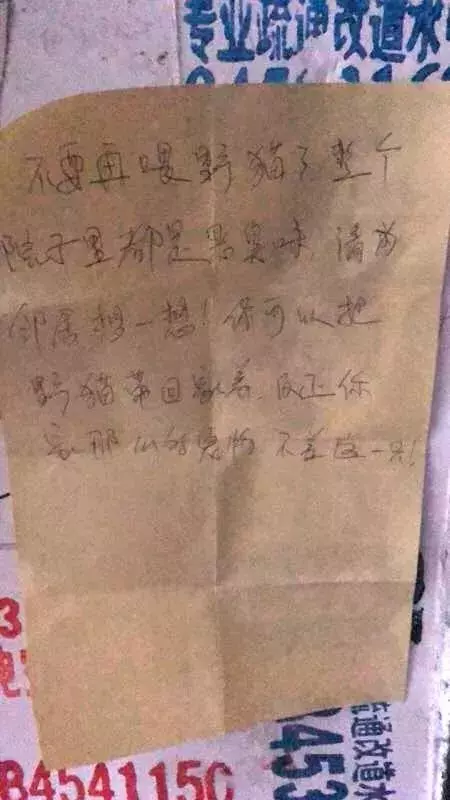 专业疏通改道水
不要再喂野猫了整个
院子里都是恶臭味,请为
邻居想一想!你可以把
野猫带回家养,反正你
家那么多宠物不差这一只!
疏通改道水
8453
84541150